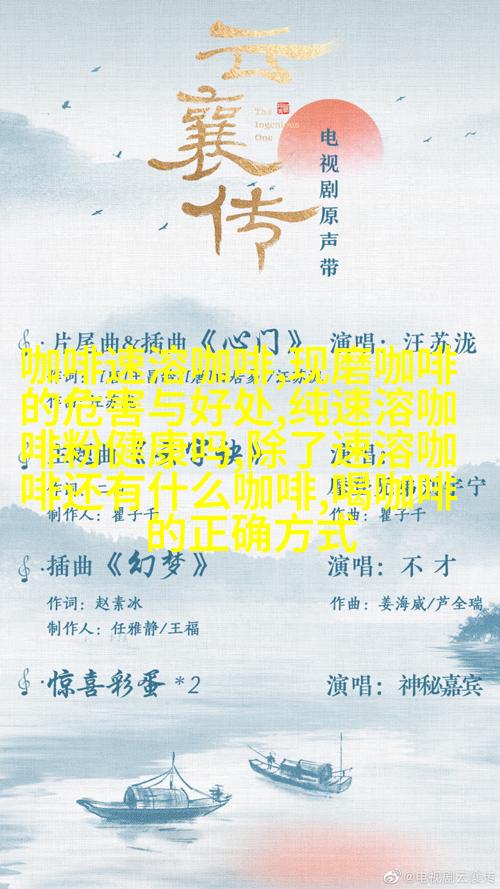 云襄传
The
Ingenious
One
电视剧原声带
片尾曲&插曲《心门》 演唱：汪苏泷
咖啡速溶咖啡,现磨咖啡
的危害与好处,纯速溶咖
啡粉健康吗,除了速溶咖
啡还有什么咖啡,喝咖啡
的正确方式
制作人：瞿子千
作曲：瞿子千
插曲《幻梦》 演唱：不才
作词：赵素冰 作曲：姜海威/芦全瑞
制作人：任雅静/王福
惊喜彩蛋 *2 演唱：神秘嘉宾
@电视剧云襄传